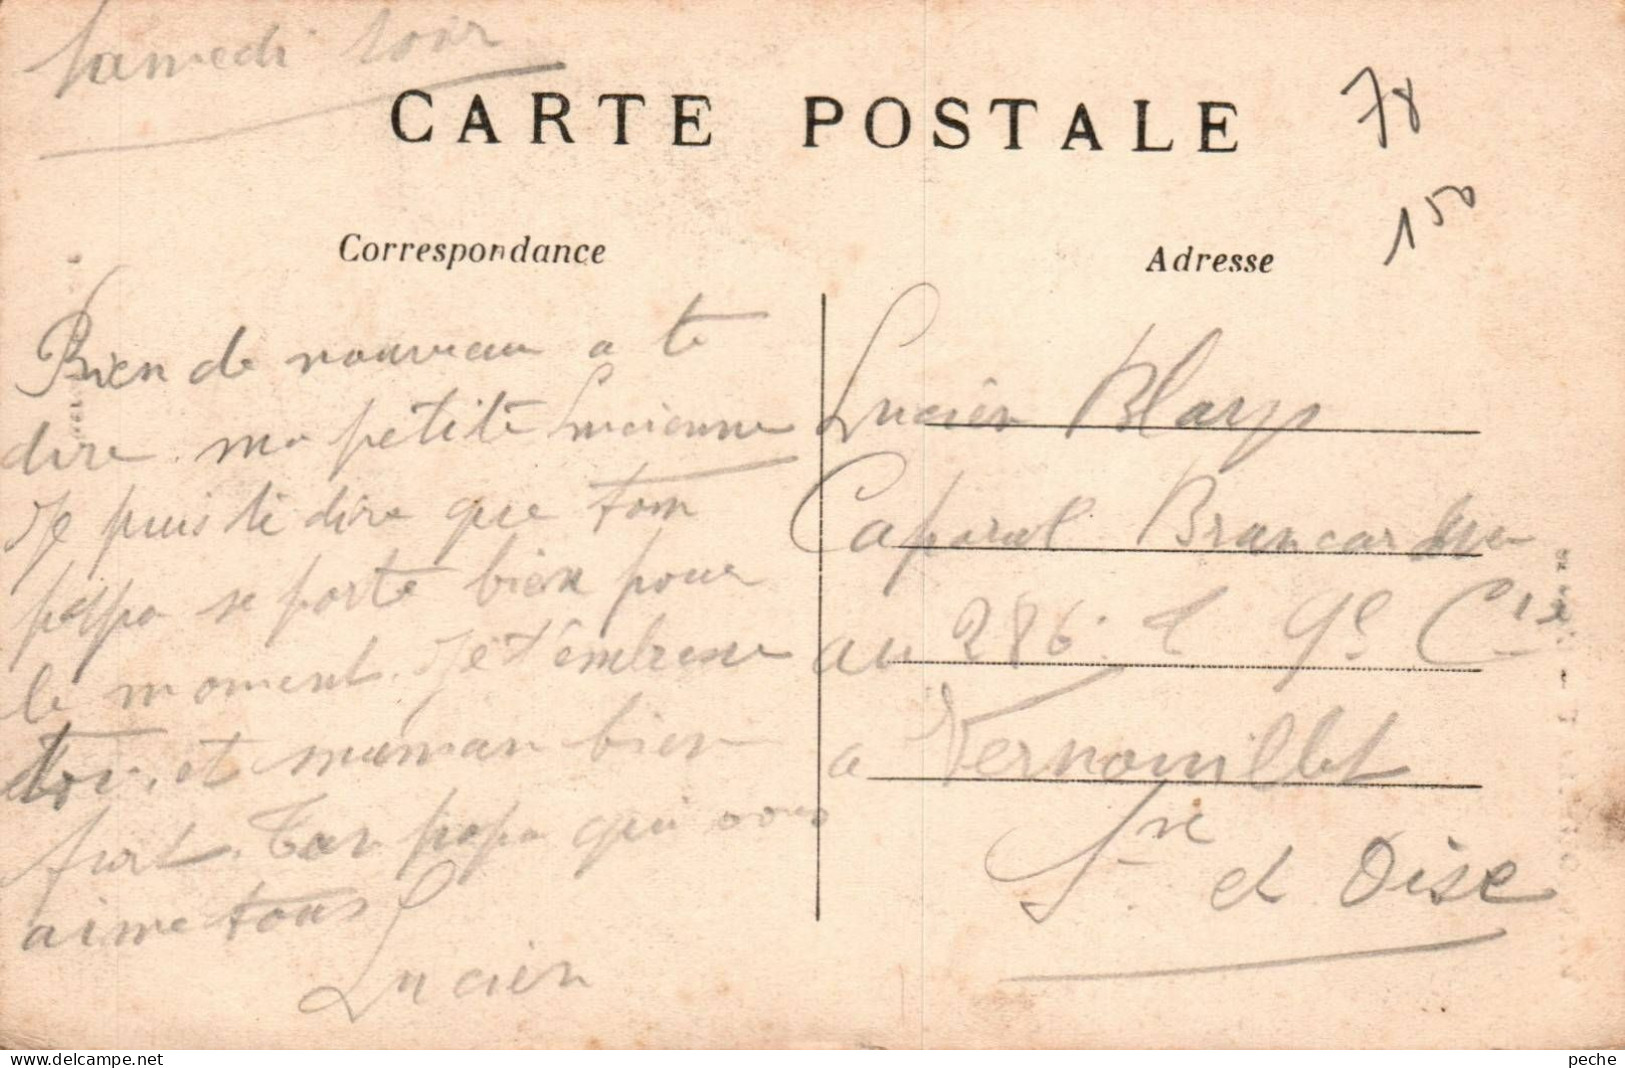 Samedi soir
CARTE POSTALE
78
150
Correspondance
Bien de nouveau a te
dire ma petite Lucienne
Je puis te dire que ton
papa se porte bien pour
le moment. Je t'embrasse
toi et maman bien
fort. Ton papa qui vous
aime tous
Lucien
Adresse
Lucien
Caporal Brancardier
au 286. T 9e Cie
a Vernouillet
Sne et Oise
peche
delcampe.net